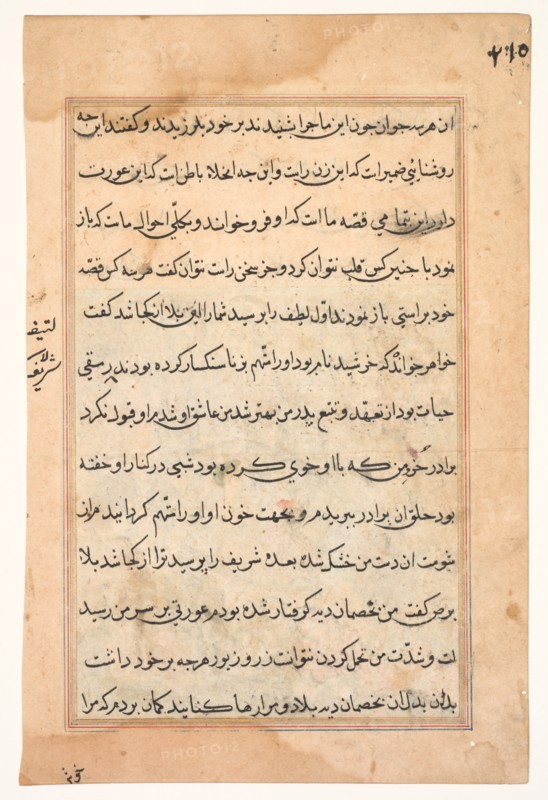 ۲۱۵
ان هر سه جوان چون این ماجرا بشنیدند بر خود بلرزیدند و گفتند این چه
روشنایی ضمیر است که این زن راست و این چه اخلاء باطن است که این عورت
دارد این تمامی قصه ما است که او فرو خواند و بکلی احوال ماست که باز
نمود با چنین کس قلب نتوان کرد و جز سخن راست نتوان گفت هر سه کس قصه
خود براستی باز نمودند اول لطیف را پرسید شما را این بلا از کجا شد گفت
خواهر خوانده که خرشید نام بود او را متهم بزنا سنکسار کرده بودند رمقی
حیات بود از تعهد و تتبع پدر من بهتر شد من عاشق او شدم او قبول نکرد
برادر خرد من که با او خوی کرده بود شبی در کنار او خفته
بود حلق ان برادر ببریدم و بجهت خون او او را متهم کردانیدم از
شومت ان دست من خشک شده بعده شریف را پرسید ترا از کجا شد بلا
برص گفت من بخصمان دیه گرفتار شده بودم عورتی بر سر من رسید
ات و شدت من تحمل کردن نتوانست زر و زیور هرچه بر خود داشت
بدان بخصمان دیه بداد و مرا رها کنانید کمان بردم که مرا
شریف
PHOTO12
PHOTO12